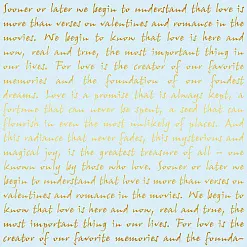 Sooner or later we begin to understand that love is
more than verses on valentines and romance in the
movies. We begin to know that love is here and
now, real and true, the most important thing in
our lives. For love is the creator of our favorite
memories and the foundation of our fondest
dreams. Love is a promise that is always kept, a
fortune that can never be spent, a seed that can
flourish in even the most unlikely of places. And
this radiance that never fades, this mysterious and
magical joy, is the greatest treasure of all - one
known only by those who love. Sooner or later we
begin to understand that love is more than verses on
valentines and romance in the movies. We begin to
know that love is here and now, real and true, the
most important thing in our lives. For love is the
creator of our favorite memories and the foundat